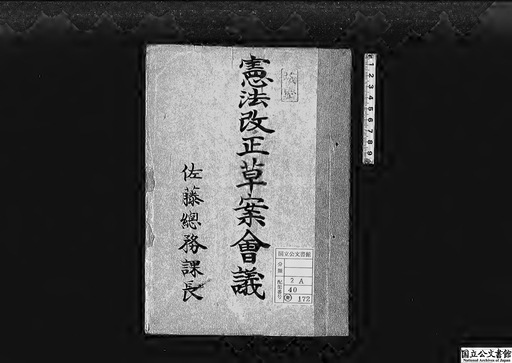 憲法改正草案會議
佐藤總務課長
国立公文書館
分類
配架番号
2A
40
172
1 2 3 4 5 6 7 8 9
国立公文書館
National Archives of Japan